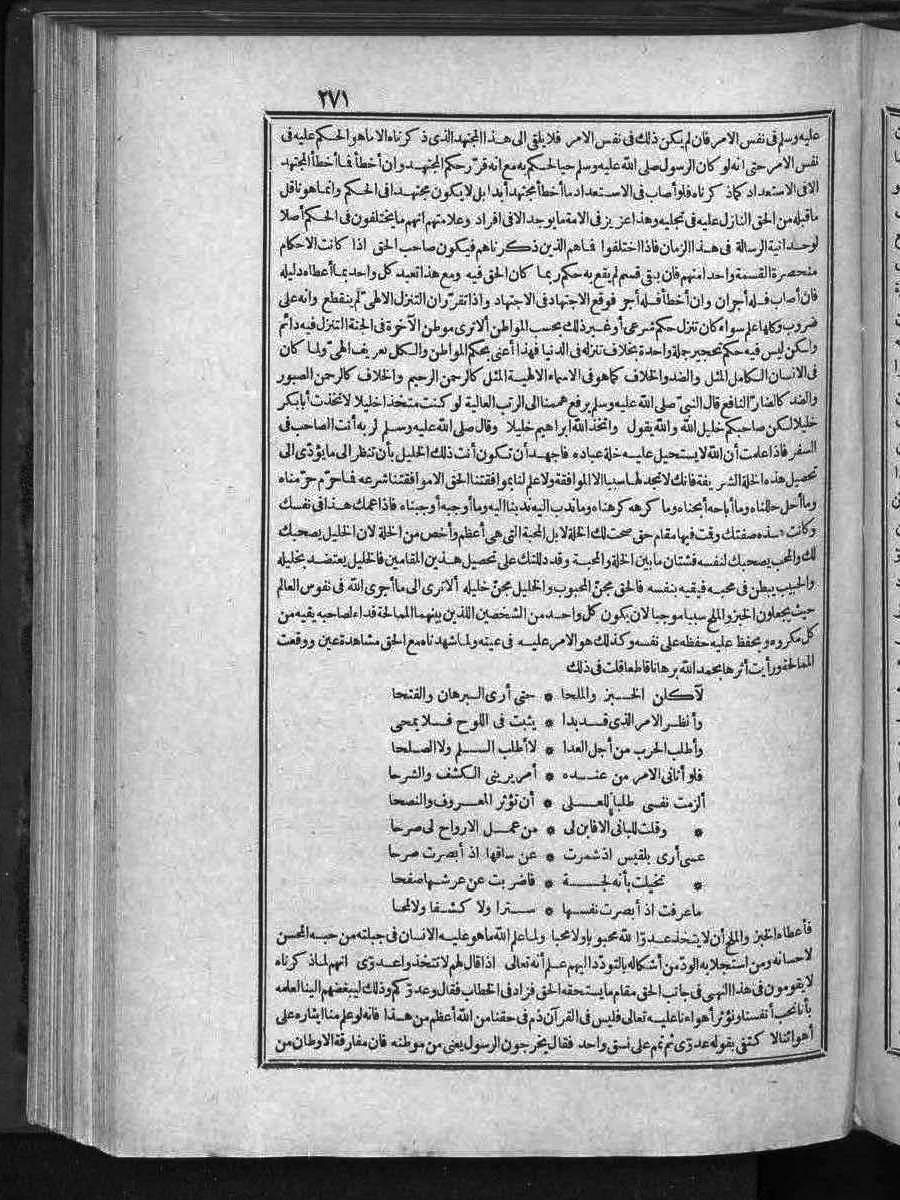 ٢٧١
عليه وسلم فى نفس الامر فان لم يكن ذلك فى نفس الامر فلا يلقى الى هذا المجتهد الذى ذكرناه الا ما هو الحكم عليه فى
نفس الامر حتى انه لو كان الرسول صلى الله عليه وسلم حيا لحكم به مع انه قرّر حكم المجتهد وان أخطأ فما أخطأ المجتهد
الا فى الاستعداد كما ذكرناه فلو أصاب فى الاستعداد ما أخطأ مجتهد أبدا بل لا يكون مجتهدا فى الحكم وانما هو ناقل
ما قبله من الحق النازل عليه فى تجليه وهذا عزيز فى الامة ما يوجد الا فى افراد وعلامتهم انهم ما يختلفون فى الحكم أصلا
لوحدانية الرسالة فى هذا الزمان فاذا اختلفوا فما هم الذين ذكرناهم فيكون صاحب الحق اذا كانت الاحكام
منحصرة القسمة واحدا منهم فان بقى قسم لم يقع به حكم ربما كان الحق فيه ومع هذا تعبد كل واحد بما أعطاه دليله
فان أصاب فله أجران وان أخطأ فله أجر فوقع الاجتهاد فى الاجتهاد واذا تقرّر ان التنزل الالهىّ لم ينقطع وانه على
ضروب وكلها علم سواء كان تنزل حكم شرعى أو غير ذلك بحسب المواطن ألا ترى موطن الآخرة فى الجنة التنزل فيه دائم
ولكن ليس فيه حكم تحجير جملة واحدة بخلاف تنزله فى الدنيا فهذا أعنى بحكم المواطن والكل تعريف الهىّ ولما كان
فى الانسان الكامل المثل والضد والخلاف كما هو فى الاسماء الالهية المثل كالرحمن الرحيم والخلاف كالرحمن الصبور
والضد كالضارّ النافع قال النبىّ صلى الله عليه وسلم يرفع هممنا الى الرتب العالية لو كنت متخذا خليلا لاتخذت أبا بكر
خليلا لكن صاحبكم خليل الله والله يقول واتخذ الله ابراهيم خليلا وقال صلى الله عليه وسلم لربه أنت الصاحب فى
السفر فاذا علمت أن الله لا يستحيل عليه خلة عباده فاجهد أن تكون أنت ذلك الخليل بأن تنظر الى ما يؤدّى الى
تحصيل هذه الخلة الشريفة فانك لا تجد لها سببا الا الموافقة ولا علم لنا بموافقتنا الحق الا موافقتنا شرعه فما حرّم حرّمناه
وما أحل حللناه وما أباحه أبحناه وما كرهه كرهناه وما ندب اليه ندبنا اليه وما أوجبه أوجبناه فاذا عمك هذا فى نفسك
وكانت هذه صفتك وقت فيها مقام حق صحت لك الخلة لا بل المحبة التى هى أعظم وأخص من الخلة لان الخليل يصحبك
لك والمحب يصحبك لنفسه فشتان ما بين الخلة والمحبة وقد دللتك على تحصيل هذين المقامين فالخليل يعتضد بخليله
والحبيب يبطن فى محبه فيقيه بنفسه فالحق مجنّ المحبوب والخليل مجنّ خليله ألا ترى الى ما أجرى الله فى نفوس العالم
حيث يجعلون الخبز والملح سببا موجبا لان يكون كل واحد من الشخصين اللذين بينهما الممالحة فداء لصاحبه يقيه من
كل مكروه ويحفظ عليه حفظه على نفسه وكذلك هو الامر عليه فى عينه ولما شهدناه مع الحق مشاهدة عين ووقعت
الممالحة ورأيت أثرها بحمد الله برهانا قاطعا قلت فى ذلك
لآكلن الخبز والملحا * حتى أرى البرهان والفتحا
وأنظر الامر الذى قد بدا * يثبت فى اللوح فلا يمحى
وأطلب الحرب من أجل العدا * لا أطلب السلم ولا الصلحا
فلو أتانى الامر من عنده * أمر يرينى الكشف والشرحا
ألزمت نفسى طلبا للعلى * أن تؤثر المعروف والنصحا
* وقلت للبانى الا فابن لى * من عمل الارواح لى صرحا
عسى أرى بلقيس اذ شمرت * عن ساقها اذ أبصرت صرحا
* تخيلت بأنه لجة * فاضربت عن عرشها صفحا
ما عرفت اذ أبصرت نفسها * سترا ولا كشفا ولا لمحا
فأعطاه الخبز والملح أن لا يتخذ عدوّا لله محبوبا ولا محبا ولما علم الله ما هو عليه الانسان فى جبلته من حبه المحسن
لاحسانه ومن استجلابه الودّ من أشكاله بالتودّد اليهم علم أنه تعالى اذا قال لهم لا تتخذوا عدوّى انهم لما ذكرناه
لا يقومون فى هذا النهى فى جانب الحق مقام ما يستحقه الحق فزاد فى الخطاب فقال وعدوّكم وذلك ليبغضهم الينا لعلمه
بأنا نحب أنفسنا ونؤثر أهواءنا عليه تعالى فليس فى القرآن ذم فى حقنا من الله أعظم من هذا فانه لو علم منا ايثاره على
أهوائنا لا كتفى بقوله عدوّى ثم تمم على نسق واحد فقال يخرجون الرسول يعنى من موطنه فان مفارقة الاوطان من